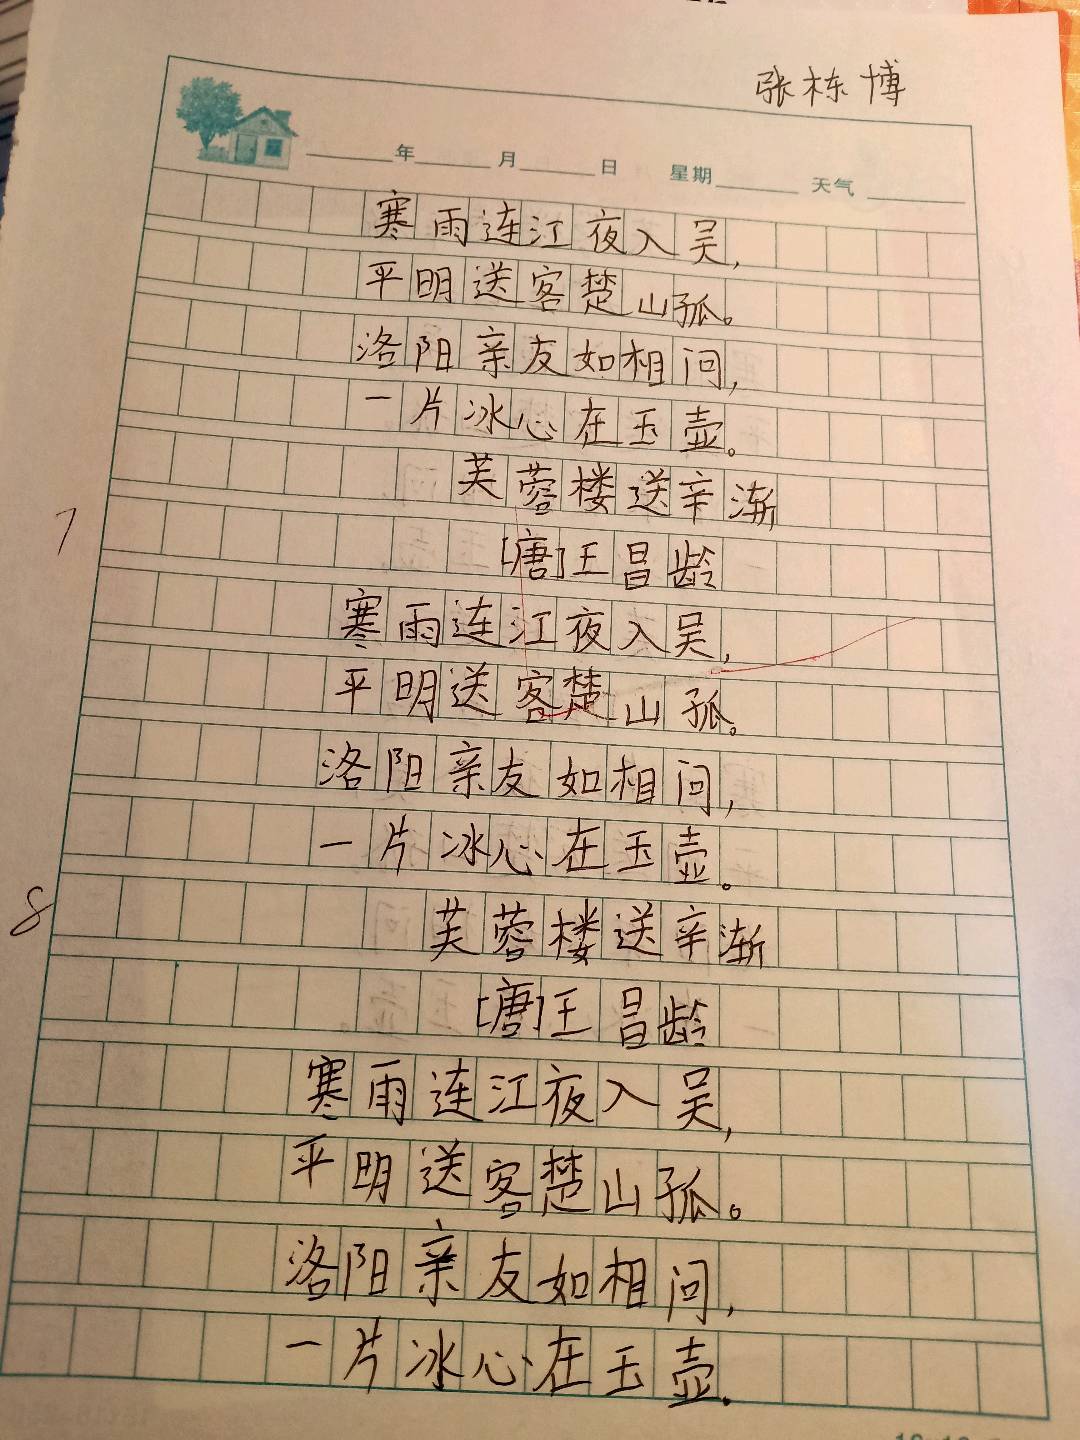 张栋博
年 月 日 星期 天气
寒雨连江夜入吴,
平明送客楚山孤。
洛阳亲友如相问,
一片冰心在玉壶。
7 芙蓉楼送辛渐
[唐]王昌龄
寒雨连江夜入吴,
平明送客楚山孤。
洛阳亲友如相问,
一片冰心在玉壶。
8 芙蓉楼送辛渐
[唐]王昌龄
寒雨连江夜入吴,
平明送客楚山孤。
洛阳亲友如相问,
一片冰心在玉壶。